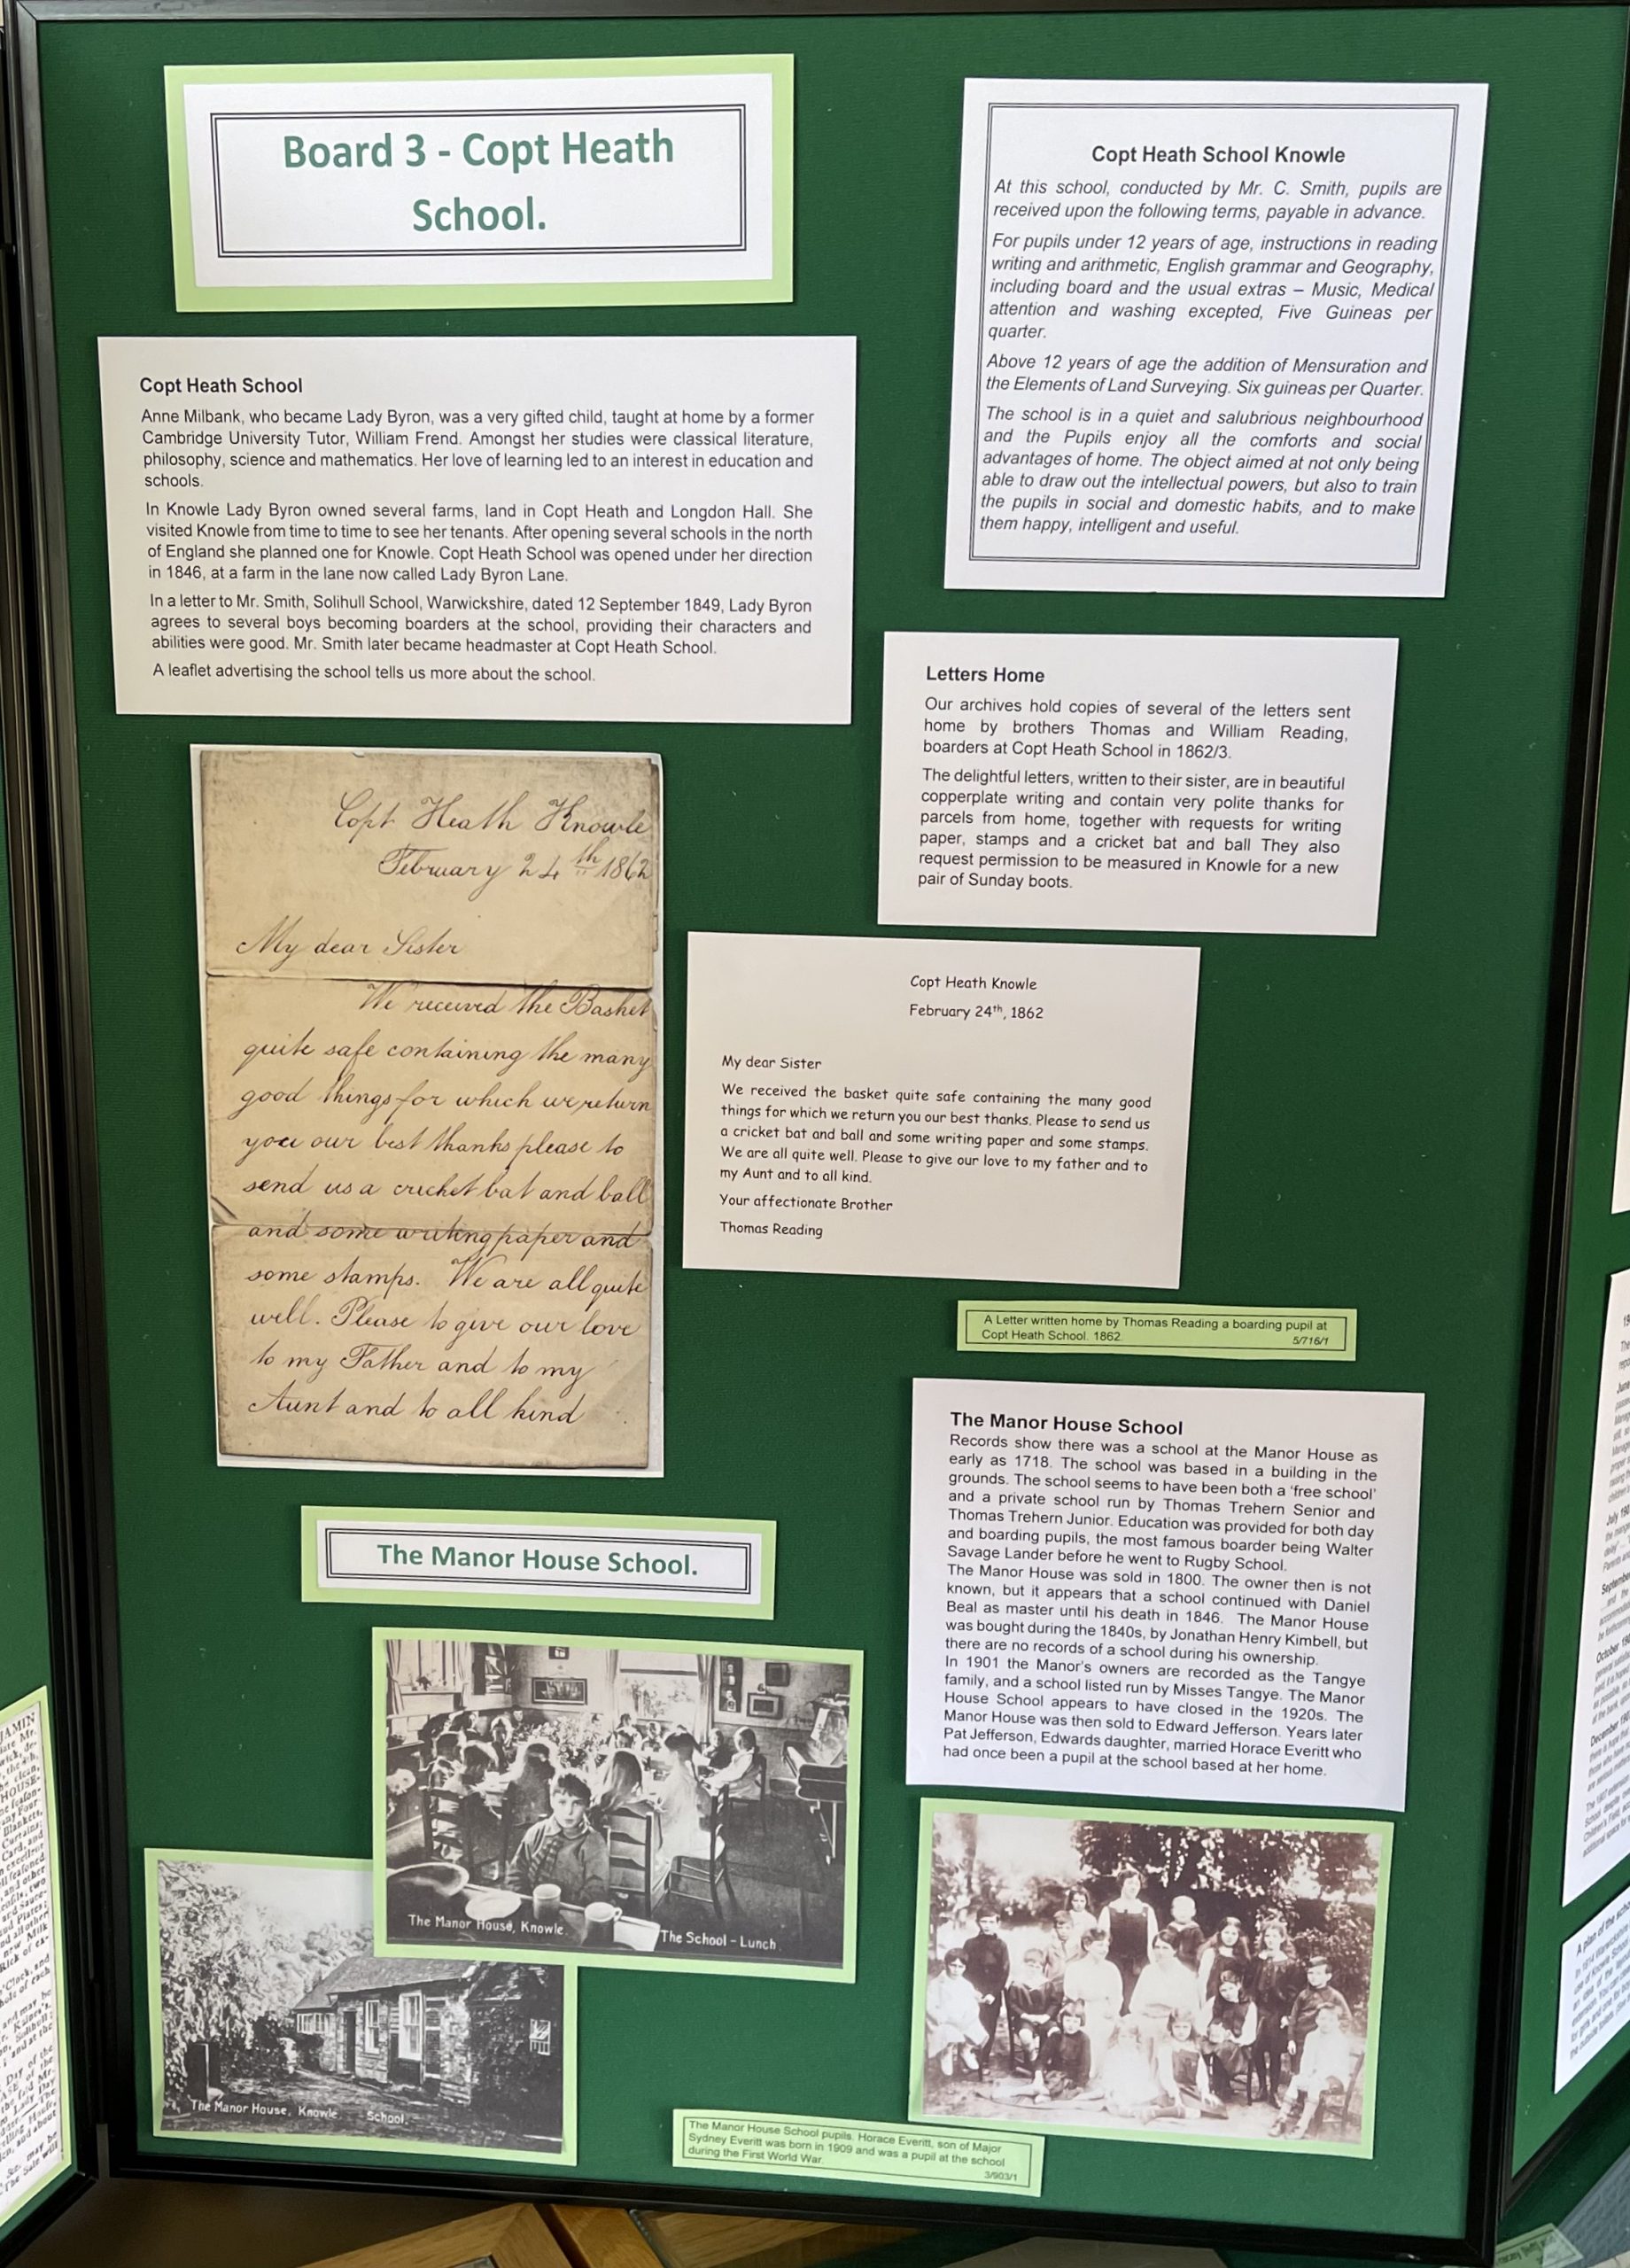 Board 3 - Copt Heath
School.
Copt Heath School
Anne Milbank, who became Lady Byron, was a very gifted child, taught at home by a former
Cambridge University Tutor, William Frend. Amongst her studies were classical literature,
philosophy, science and mathematics. Her love of learning led to an interest in education and
schools.
In Knowle Lady Byron owned several farms, land in Copt Heath and Longdon Hall. She
visited Knowle from time to time to see her tenants. After opening several schools in the north
of England she planned one for Knowle. Copt Heath School was opened under her direction
in 1846, at a farm in the lane now called Lady Byron Lane.
In a letter to Mr. Smith, Solihull School, Warwickshire, dated 12 September 1849, Lady Byron
agrees to several boys becoming boarders at the school, providing their characters and
abilities were good. Mr. Smith later became headmaster at Copt Heath School.
A leaflet advertising the school tells us more about the school.
Copt Heath School Knowle
At this school, conducted by Mr. C. Smith, pupils are
received upon the following terms, payable in advance.
For pupils under 12 years of age, instructions in reading
writing and arithmetic, English grammar and Geography,
including board and the usual extras – Music, Medical
attention and washing excepted, Five Guineas per
quarter.
Above 12 years of age the addition of Mensuration and
the Elements of Land Surveying. Six guineas per Quarter.
The school is in a quiet and salubrious neighbourhood
and the Pupils enjoy all the comforts and social
advantages of home. The object aimed at not only being
able to draw out the intellectual powers, but also to train
the pupils in social and domestic habits, and to make
them happy, intelligent and useful.
Letters Home
Our archives hold copies of several of the letters sent
home by brothers Thomas and William Reading,
boarders at Copt Heath School in 1862/3.
The delightful letters, written to their sister, are in beautiful
copperplate writing and contain very polite thanks for
parcels from home, together with requests for writing
paper, stamps and a cricket bat and ball They also
request permission to be measured in Knowle for a new
pair of Sunday boots.
Copt Heath Knowle
February 24th 1862
My dear Sister
We received the Basket
quite safe containing the many
good things for which we return
you our best thanks please to
send us a cricket bat and ball
and some writing paper and
some stamps. We are all quite
well. Please to give our love
to my Father and to my
Aunt and to all kind
Copt Heath Knowle
February 24th, 1862
My dear Sister
We received the basket quite safe containing the many good
things for which we return you our best thanks. Please to send us
a cricket bat and ball and some writing paper and some stamps.
We are all quite well. Please to give our love to my father and to
my Aunt and to all kind.
Your affectionate Brother
Thomas Reading
A Letter written home by Thomas Reading a boarding pupil at
Copt Heath School. 1862
5/716/1
The Manor House School.
The Manor House School
Records show there was a school at the Manor House as
early as 1718. The school was based in a building in the
grounds. The school seems to have been both a 'free school'
and a private school run by Thomas Trehern Senior and
Thomas Trehern Junior. Education was provided for both day
and boarding pupils, the most famous boarder being Walter
Savage Lander before he went to Rugby School.
The Manor House was sold in 1800. The owner then is not
known, but it appears that a school continued with Daniel
Beal as master until his death in 1846. The Manor House
was bought during the 1840s, by Jonathan Henry Kimbell, but
there are no records of a school during his ownership.
In 1901 the Manor's owners are recorded as the Tangye
family, and a school listed run by Misses Tangye. The Manor
House School appears to have closed in the 1920s. The
Manor House was then sold to Edward Jefferson. Years later
Pat Jefferson, Edwards daughter, married Horace Everitt who
had once been a pupil at the school based at her home.
The Manor House, Knowle
The School - Lunch
The Manor House, Knowle. School.
The Manor House School pupils. Horace Everitt, son of Major
Sydney Everitt was born in 1909 and was a pupil at the school
during the First World War.
3/903/1